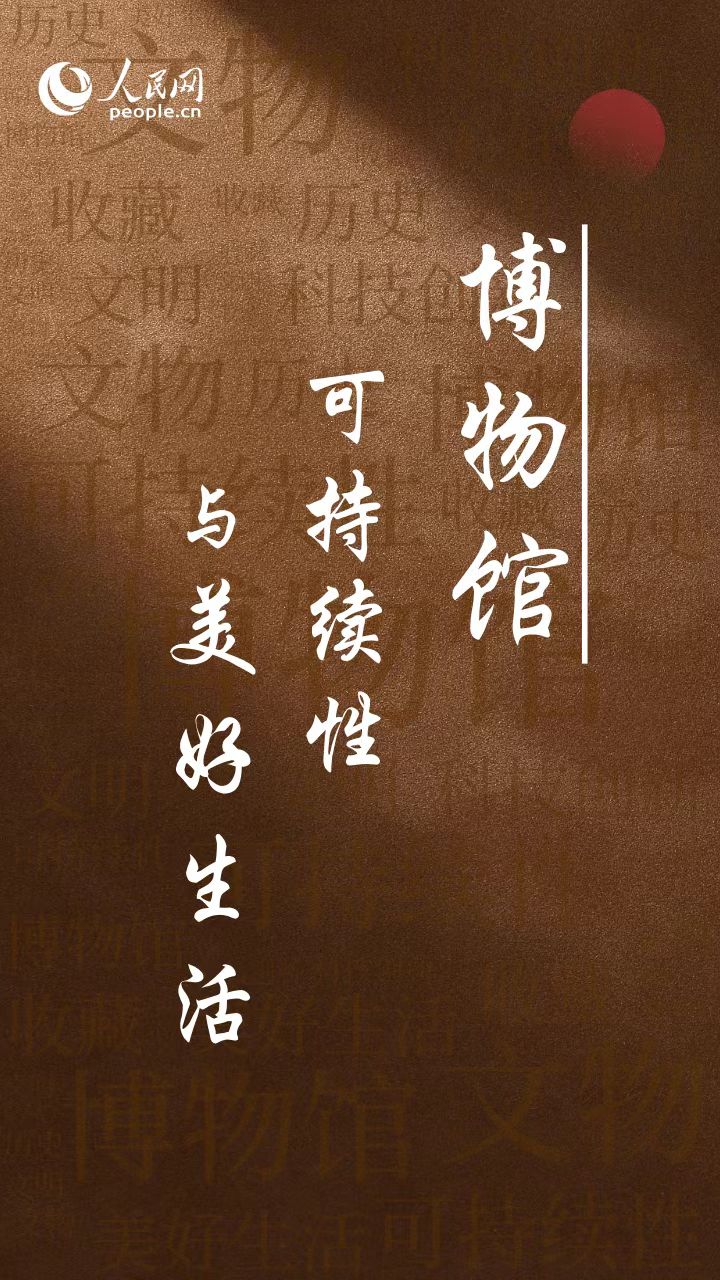 人民网
people.cn
博物馆
可持续性
与美好生活
历史
文物
博物馆
收藏
收藏
历史
文明
科技创
文物
历史
博物馆
可持续性
收藏
历史
博物馆
文明
科技创新
博物馆
收藏
美好生活
博物馆
文物
历史
文明
文物
美好生活
可持续性